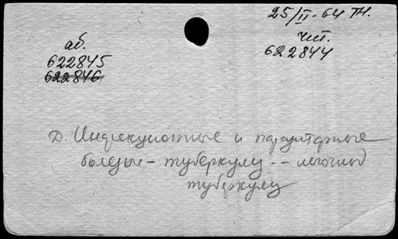 25/II-64 тн.
чит.
622844
аб.
622845
622846
Д. Инфекционные и паразитарные
болезни - туберкулез -- легочный
туберкулез